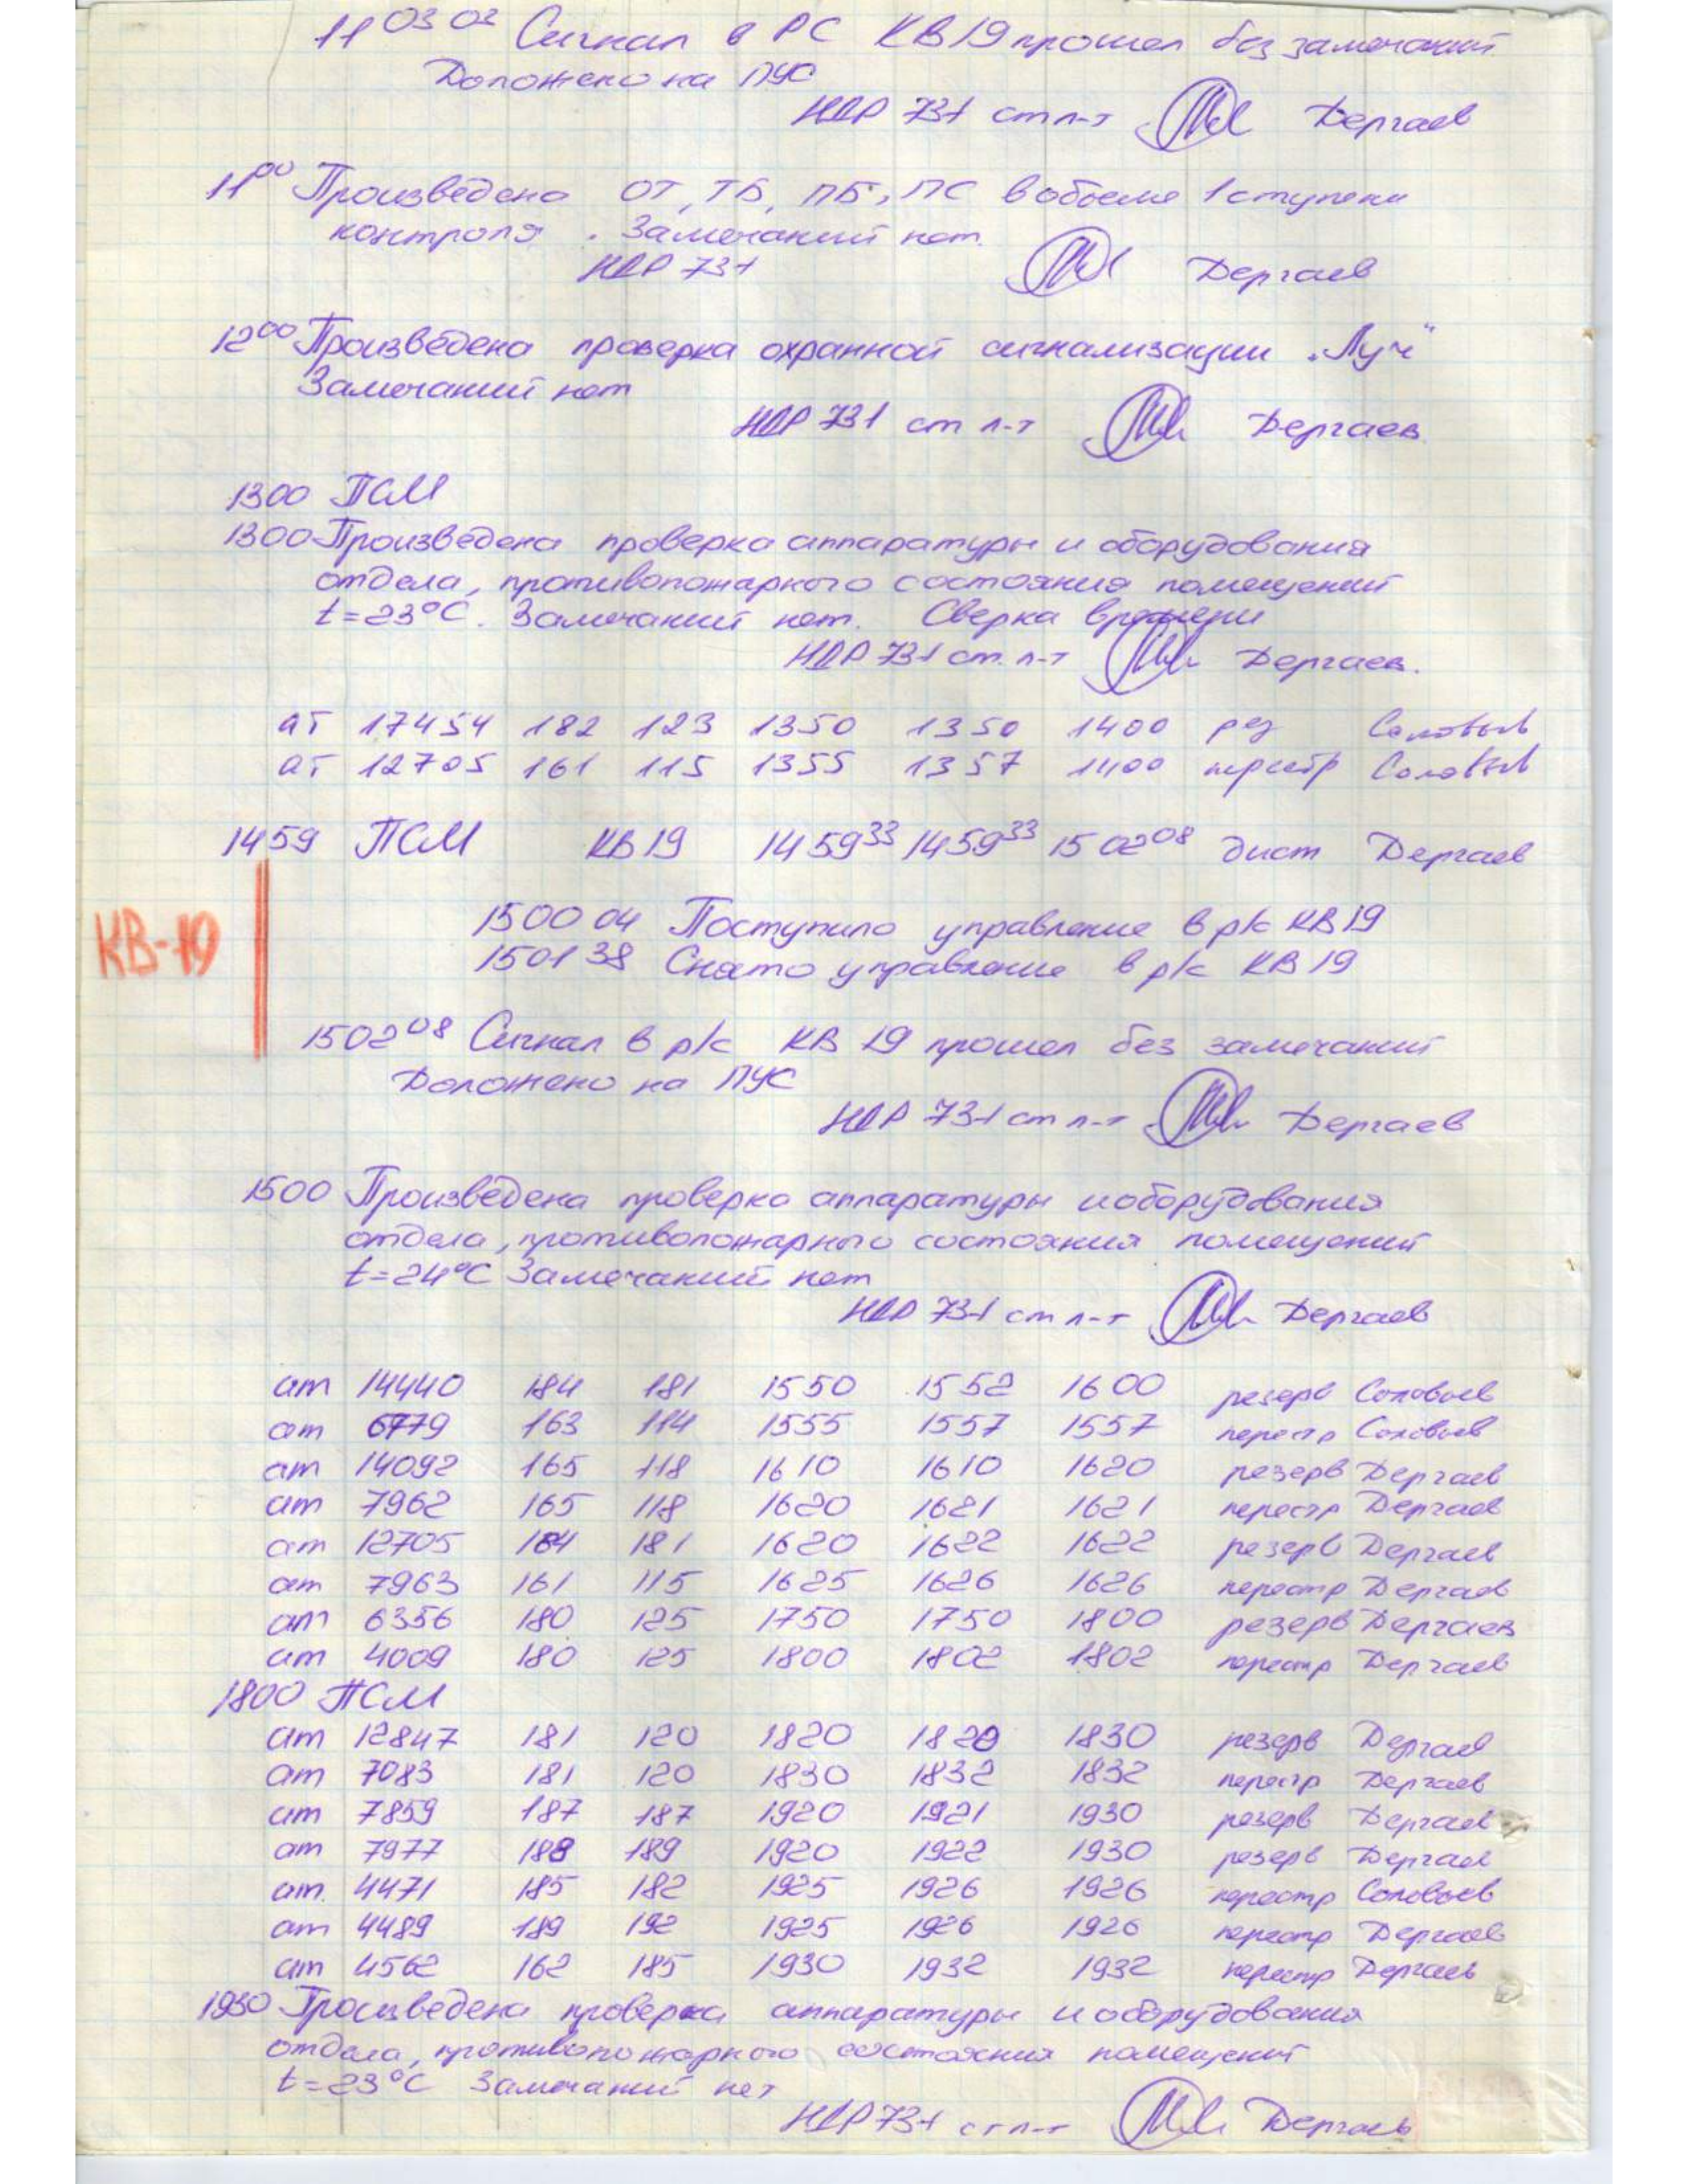 11 03 03 Сигнал в РС КВ19 прошел без замечаний
Доложено на ПУС
НДР 731 ст л-т Дергаев
11 00 Произведена ОТ, ТБ, ПБ, ПС в объеме 1 ступени
контроля. Замечаний нет.
НДР 731 Дергаев
12 00 Произведена проверка охранной сигнализации "Луч"
Замечаний нет
НДР 731 ст л-т Дергаев
1300 ПСМ
1300 Произведена проверка аппаратуры и оборудования
отдела, противопожарного состояния помещений
t=23°C. Замечаний нет. Сверка времени
НДР 731 ст. л-т Дергаев.
ат 17454 182 123 1350 1350 1400 рез Соловьев
ат 12705 161 115 1355 1357 1400 перестр Соловьев
1459 ПСМ КВ19 14 59 33 14 59 33 15 02 08 дист Дергаев
КВ-19
1500 04 Поступило управление в р/с КВ19
1501 38 Снято управление в р/с КВ19
1502 08 Сигнал в р/с КВ 19 прошел без замечаний
Доложено на ПУС
НДР 731 ст л-т Дергаев
1500 Произведена проверка аппаратуры и оборудования
отдела, противопожарного состояния помещений
t=24°C Замечаний нет
НДР 731 ст л-т Дергаев
ат 14440 184 181 1550 1552 1600 резерв Соловьев
ат 6779 163 114 1555 1557 1557 перестр Соловьев
ат 14092 165 118 1610 1610 1620 резерв Дергаев
ат 7962 165 118 1620 1621 1621 перестр Дергаев
ат 12705 184 181 1620 1622 1622 резерв Дергаев
ат 7963 161 115 1625 1626 1626 перестр Дергаев
ат 6356 180 125 1750 1750 1800 резерв Дергаев
ат 4009 180 125 1800 1802 1802 перестр Дергаев
1800 ПСМ
ат 12847 181 120 1820 1820 1830 резерв Дергаев
ат 7083 181 120 1830 1832 1832 перестр Дергаев
ат 7859 187 187 1920 1921 1930 резерв Дергаев
ат 7977 188 189 1920 1922 1930 резерв Дергаев
ат. 4471 185 182 1925 1926 1926 перестр Соловьев
ат 4489 189 192 1925 1926 1926 перестр Дергаев
ат 4562 162 185 1930 1932 1932 перестр Дергаев
1930 Произведена проверка аппаратуры и оборудования
отдела, противопожарного состояния помещений
t=23°C Замечаний нет
НДР 731 ст л-т Дергаев